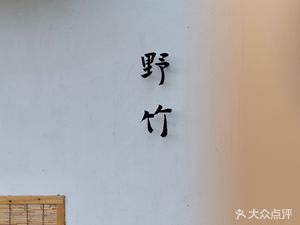 野竹
大众点评